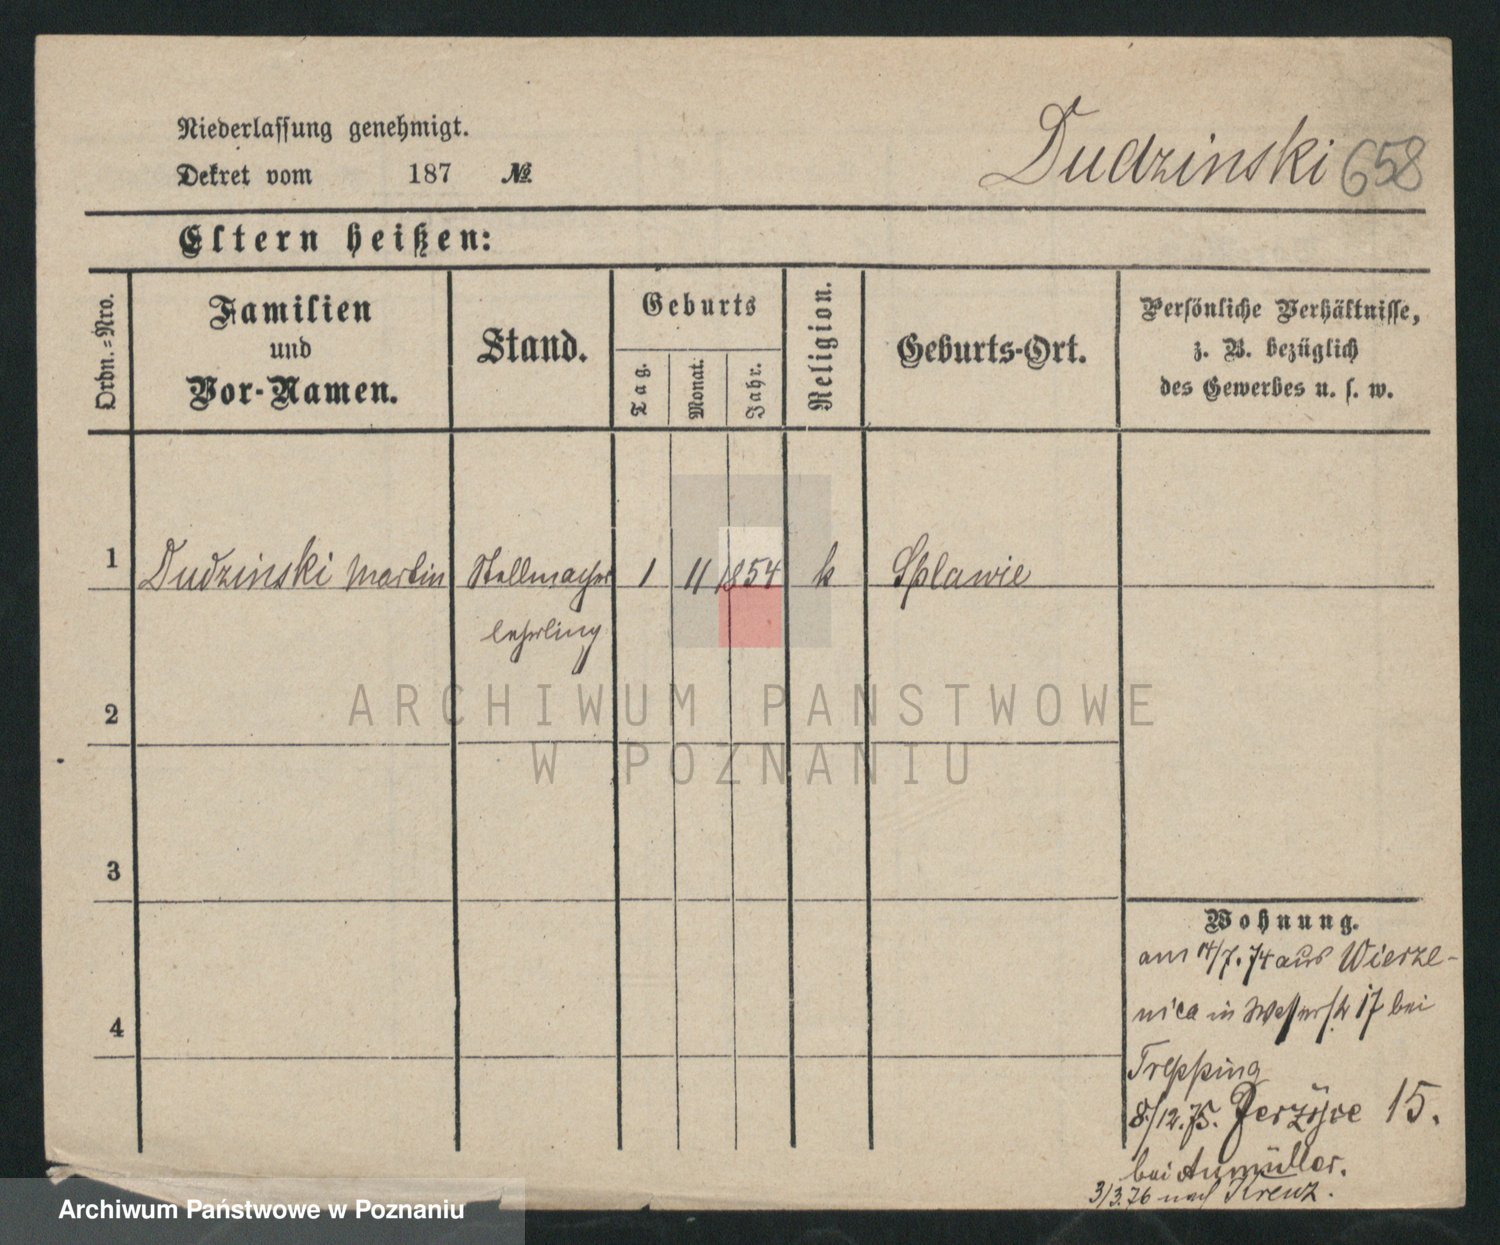 Niederlassung genehmigt.
Dekret vom 187 №
Dudzinski 658
Eltern heißen:
Ordn.=Nro.
Familien
und
Vor-Namen.
Stand.
Geburts
Tag.
Monat.
Jahr.
Religion.
Geburts-Ort.
Persönliche Verhältnisse,
z. B. bezüglich
des Gewerbes u. s. w.
1 Dudzinski Martin Stellmacher 1 11 1854 k Splawie
lehrling
ARCHIWUM PAŃSTWOWE
2
W POZNANIU
3
Wohnung.
am 14/7. 74 aus Wierze-
nica in 17 bei
4
Trepping
8/12. 75. 15.
bei Aumüller.
3/3. 76 nach Kreuz.
Archiwum Państwowe w Poznaniu